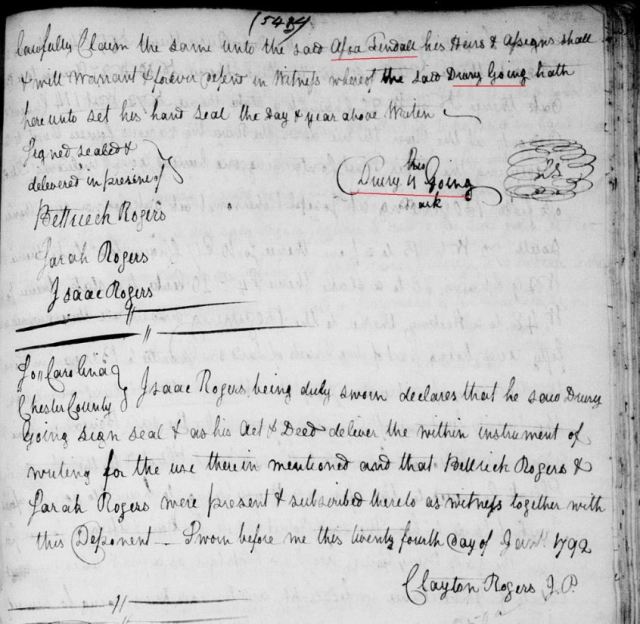 (5484)
lawfully Claim the same unto the said Asa Tindall his Heirs & Assigns shall
& will Warrant & forever defend in Witness whereof the said Drury Going hath
here unto set his hand seal the day & year above Writen
Signed sealed &
delivered in presine of
his
Drury Going
mark
Bettiech Rogers
Sarah Rogers
Isaac Rogers
So Carolina
Chester County
Isaac Rogers being duly sworn declares that he saw Drury
Going sign seal & as his Act & Deed deliver the within instrument of
writing for the use therein mentioned and that Bettiech Rogers &
Sarah Rogers were present & subscribed thereto as witness together with
this Deponent — Sworn before me this twenty fourth day of Jany. 1792
Clayton Rogers J.P.